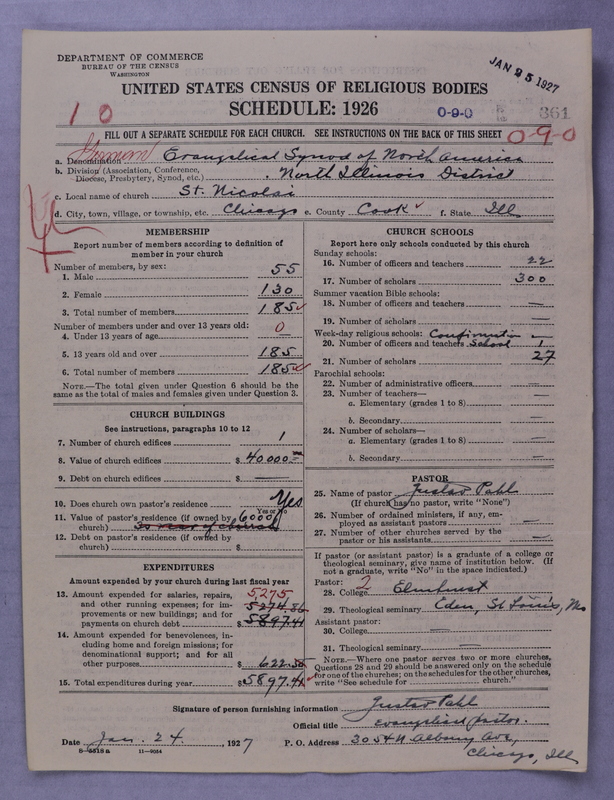 DEPARTMENT OF COMMERCE
BUREAU OF THE CENSUS
WASHINGTON
JAN 25 1927
UNITED STATES CENSUS OF RELIGIOUS BODIES
SCHEDULE: 1926
1 0
0-9-0
361
FILL OUT A SEPARATE SCHEDULE FOR EACH CHURCH. SEE INSTRUCTIONS ON THE BACK OF THIS SHEET
0-9-0
German
a. Denomination Evangelical Synod of North America
b. Division (Association, Conference, Diocese, Presbytery, Synod, etc.) North Illinois District
c. Local name of church St. Nicolai
d. City, town, village, or township, etc. Chicago e. County Cook f. State Ill
MEMBERSHIP
Report number of members according to definition of member in your church
Number of members, by sex:
1. Male 55
2. Female 130
3. Total number of members 185
Number of members under and over 13 years old:
4. Under 13 years of age 0
5. 13 years old and over 185
6. Total number of members 185
NOTE.—The total given under Question 6 should be the same as the total of males and females given under Question 3.
CHURCH BUILDINGS
See instructions, paragraphs 10 to 12
7. Number of church edifices 1
8. Value of church edifices $ 40000
9. Debt on church edifices $ —
10. Does church own pastor's residence Yes
Yes or No
11. Value of pastor's residence (if owned by church) 6000
12. Debt on pastor's residence (if owned by church) $
EXPENDITURES
Amount expended by your church during last fiscal year
13. Amount expended for salaries, repairs, and other running expenses; for improvements or new buildings; and for payments on church debt $ 5,275 5274.86 5897.41
14. Amount expended for benevolences, including home and foreign missions; for denominational support; and for all other purposes $ 622.55
15. Total expenditures during year $ 5897.41
CHURCH SCHOOLS
Report here only schools conducted by this church
Sunday schools:
16. Number of officers and teachers 22
17. Number of scholars 300
Summer vacation Bible schools:
18. Number of officers and teachers —
19. Number of scholars —
Week-day religious schools: Confirmation
20. Number of officers and teachers School 1
21. Number of scholars 27
Parochial schools:
22. Number of administrative officers —
23. Number of teachers—
a. Elementary (grades 1 to 8) —
b. Secondary —
24. Number of scholars—
a. Elementary (grades 1 to 8) —
b. Secondary —
PASTOR
25. Name of pastor Gustav Pahl
(If church has no pastor, write "None")
26. Number of ordained ministers, if any, employed as assistant pastors —
27. Number of other churches served by the pastor or his assistants —
If pastor (or assistant pastor) is a graduate of a college or theological seminary, give name of institution below. (If not a graduate, write "No" in the space indicated.)
Pastor:
28. College Elmhurst
29. Theological seminary Eden, St Louis, Mo
Assistant pastor:
30. College —
31. Theological seminary —
NOTE.—Where one pastor serves two or more churches, Questions 28 and 29 should be answered only on the schedule for one of the churches; on the schedules for the other churches, write "See schedule for church."
Signature of person furnishing information Gustav Pahl
Official title evangelical pastor.
Date Jan. 24, 1927 P. O. Address 3054 N Albany Ave,
Chicago, Ill
11—9054